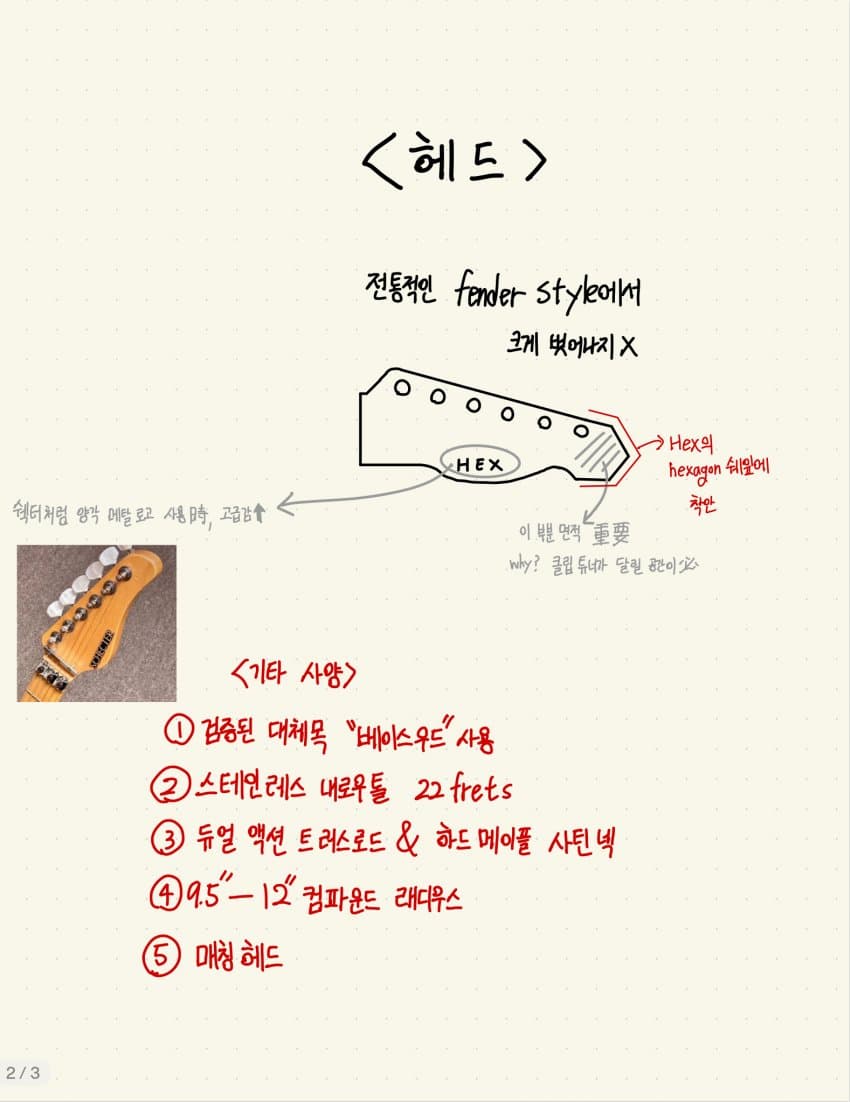 <헤드>
전통적인 fender style에서
크게 벗어나지 X
HEX
Hex의
hexagon 쉐잎에
착안
쉑터처럼 양각 메탈로고 사용時, 고급감↑
이 부분 면적 重要
why? 클립 튜너가 달릴 공간이
SCHECTER
<기타 사양>
① 검증된 대체목 "베이스우드" 사용
② 스테인레스 내로우톨 22 frets
③ 듀얼 액션 트러스로드 & 하드메이플 사틴넥
④ 9.5"–12" 컴파운드 래디우스
⑤ 매칭헤드
2 / 3